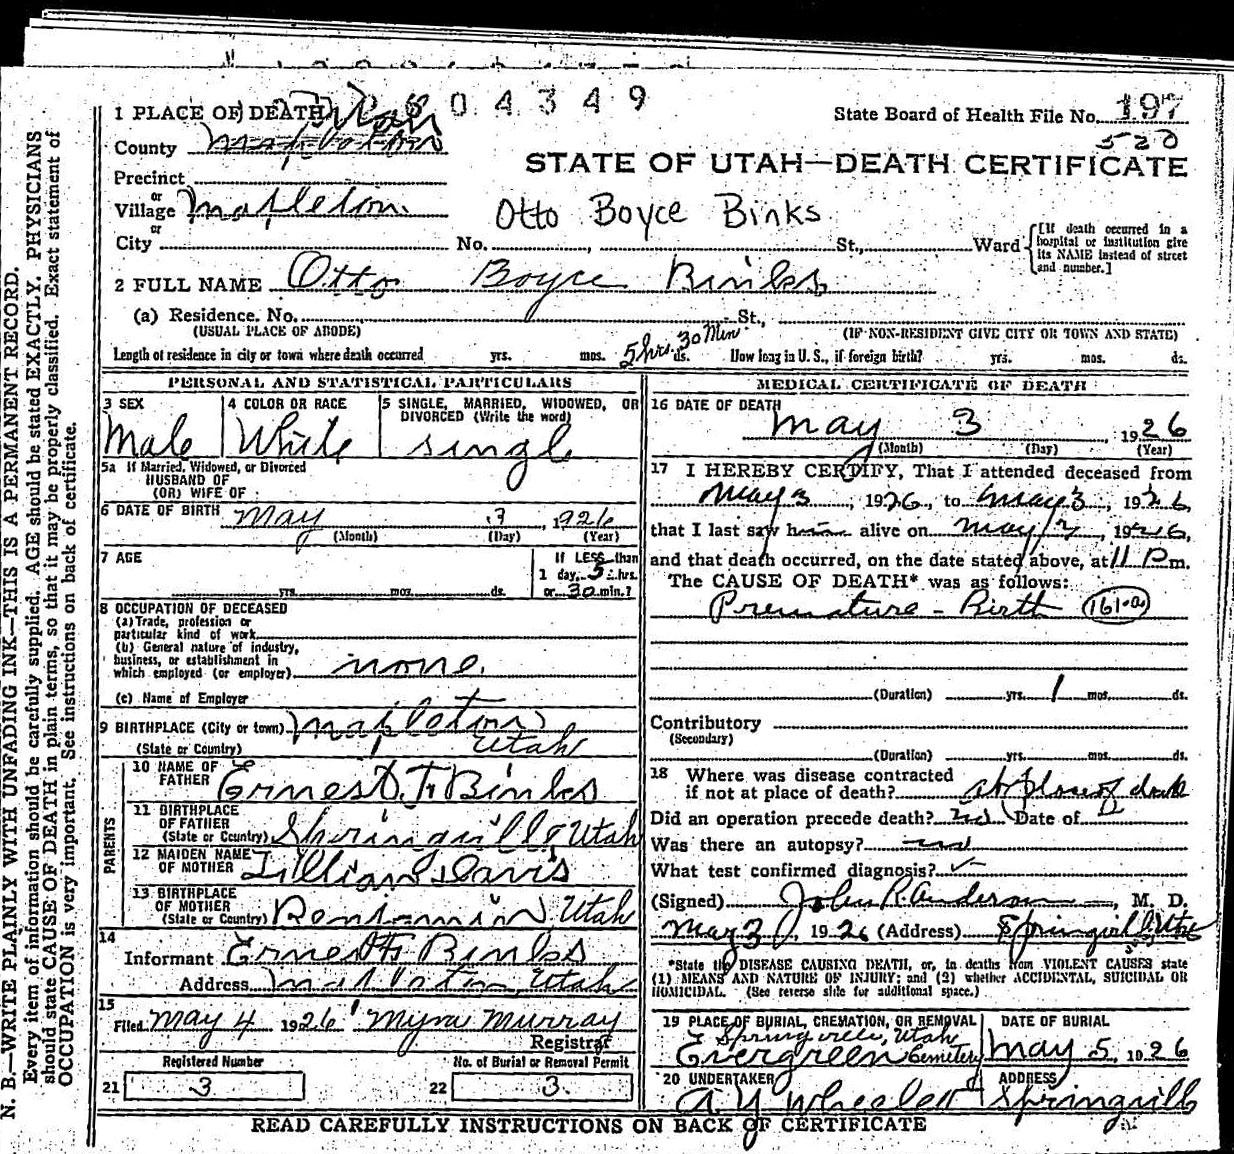 04349
1 PLACE OF DEATH Utah
State Board of Health File No. 197
520
County Mapleton
STATE OF UTAH—DEATH CERTIFICATE
Precinct
or
Village Mapleton
Otto Boyce Binks
or
City No. , St., Ward
[If death occurred in a hospital or institution give its NAME instead of street and number.]
2 FULL NAME Otto Boyce Binks
(a) Residence. No. St.,
(USUAL PLACE OF ABODE) (IF NON-RESIDENT GIVE CITY OR TOWN AND STATE)
Length of residence in city or town where death occurred yrs. mos. 5 hrs. 30 Min ds. How long in U. S., if foreign birth? yrs. mos. ds.
PERSONAL AND STATISTICAL PARTICULARS
3 SEX 4 COLOR OR RACE 5 SINGLE, MARRIED, WIDOWED, OR
DIVORCED (Write the word)
Male White Single
5a If Married, Widowed, or Divorced
HUSBAND OF
(OR) WIFE OF
6 DATE OF BIRTH May 3, 1926
(Month) (Day) (Year)
7 AGE If LESS than
1 day, 5 hrs.
yrs. mos. ds. or 30 min.?
8 OCCUPATION OF DECEASED
(a) Trade, profession or
particular kind of work
(b) General nature of industry,
business, or establishment in
which employed (or employer) none.
(c) Name of Employer
9 BIRTHPLACE (City or town) Mapleton
(State or Country) Utah
PARENTS
10 NAME OF
FATHER Ernest F. Binks
11 BIRTHPLACE
OF FATHER
(State or Country) Springville, Utah
12 MAIDEN NAME
OF MOTHER Lillian Davis
13 BIRTHPLACE
OF MOTHER
(State or Country) Benjamin, Utah
14
Informant Ernest F. Binks
Address Mapleton, Utah
15
Filed May 4 1926 Myra Murray
Registrar
Registered Number No. of Burial or Removal Permit
21 3 22 3.
MEDICAL CERTIFICATE OF DEATH
16 DATE OF DEATH
May 3, 1926
(Month) (Day) (Year)
17 I HEREBY CERTIFY, That I attended deceased from
May 3, 1926, to May 3, 1926,
that I last saw him alive on May 3, 1926,
and that death occurred, on the date stated above, at 11 P m.
The CAUSE OF DEATH* was as follows:
Premature-Birth 161-a
(Duration) yrs. mos. ds.
Contributory
(Secondary)
(Duration) yrs. mos. ds.
18 Where was disease contracted
if not at place of death? at place of death
Did an operation precede death? no Date of
Was there an autopsy? no
What test confirmed diagnosis?
(Signed) John R. Anderson, M. D.
May 3, 1926 (Address) Springville Utah
*State the DISEASE CAUSING DEATH, or, in deaths from VIOLENT CAUSES state
(1) MEANS AND NATURE OF INJURY; and (2) whether ACCIDENTAL, SUICIDAL OR
HOMICIDAL. (See reverse side for additional space.)
19 PLACE OF BURIAL, CREMATION, OR REMOVAL DATE OF BURIAL
Springville, Utah
Evergreen Cemetery May 5, 1926
20 UNDERTAKER ADDRESS
A. Y. Wheeler Springville
READ CAREFULLY INSTRUCTIONS ON BACK OF CERTIFICATE
N. B.—WRITE PLAINLY WITH UNFADING INK—THIS IS A PERMANENT RECORD.
Every item of information should be carefully supplied. AGE should be stated EXACTLY. PHYSICIANS
should state CAUSE OF DEATH in plain terms, so that it may be properly classified. Exact statement of
OCCUPATION is very important. See instructions on back of certificate.